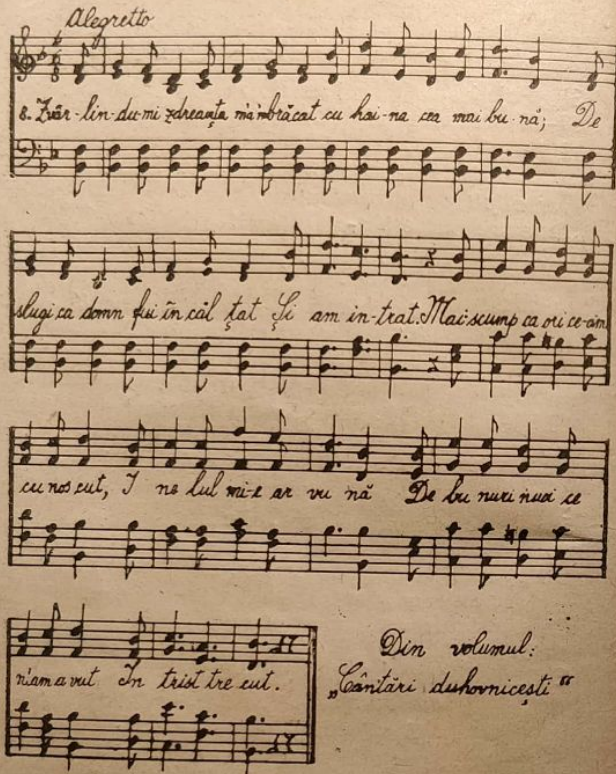 Alegretto
8. Zvâr-lin-du-mi zdreanța m'a'mbrăcat cu hai-na cea mai bu-nă; De
slugi ca domn fui în căl țat Și am in-trat. Mai scump ca ori ce-am
cu nos cut, I ne lul mi-e ar vu nă De bu nuri nuoi ce
n'am a vut In trist tre cut.
Din volumul:
„Cântări duhovnicești"